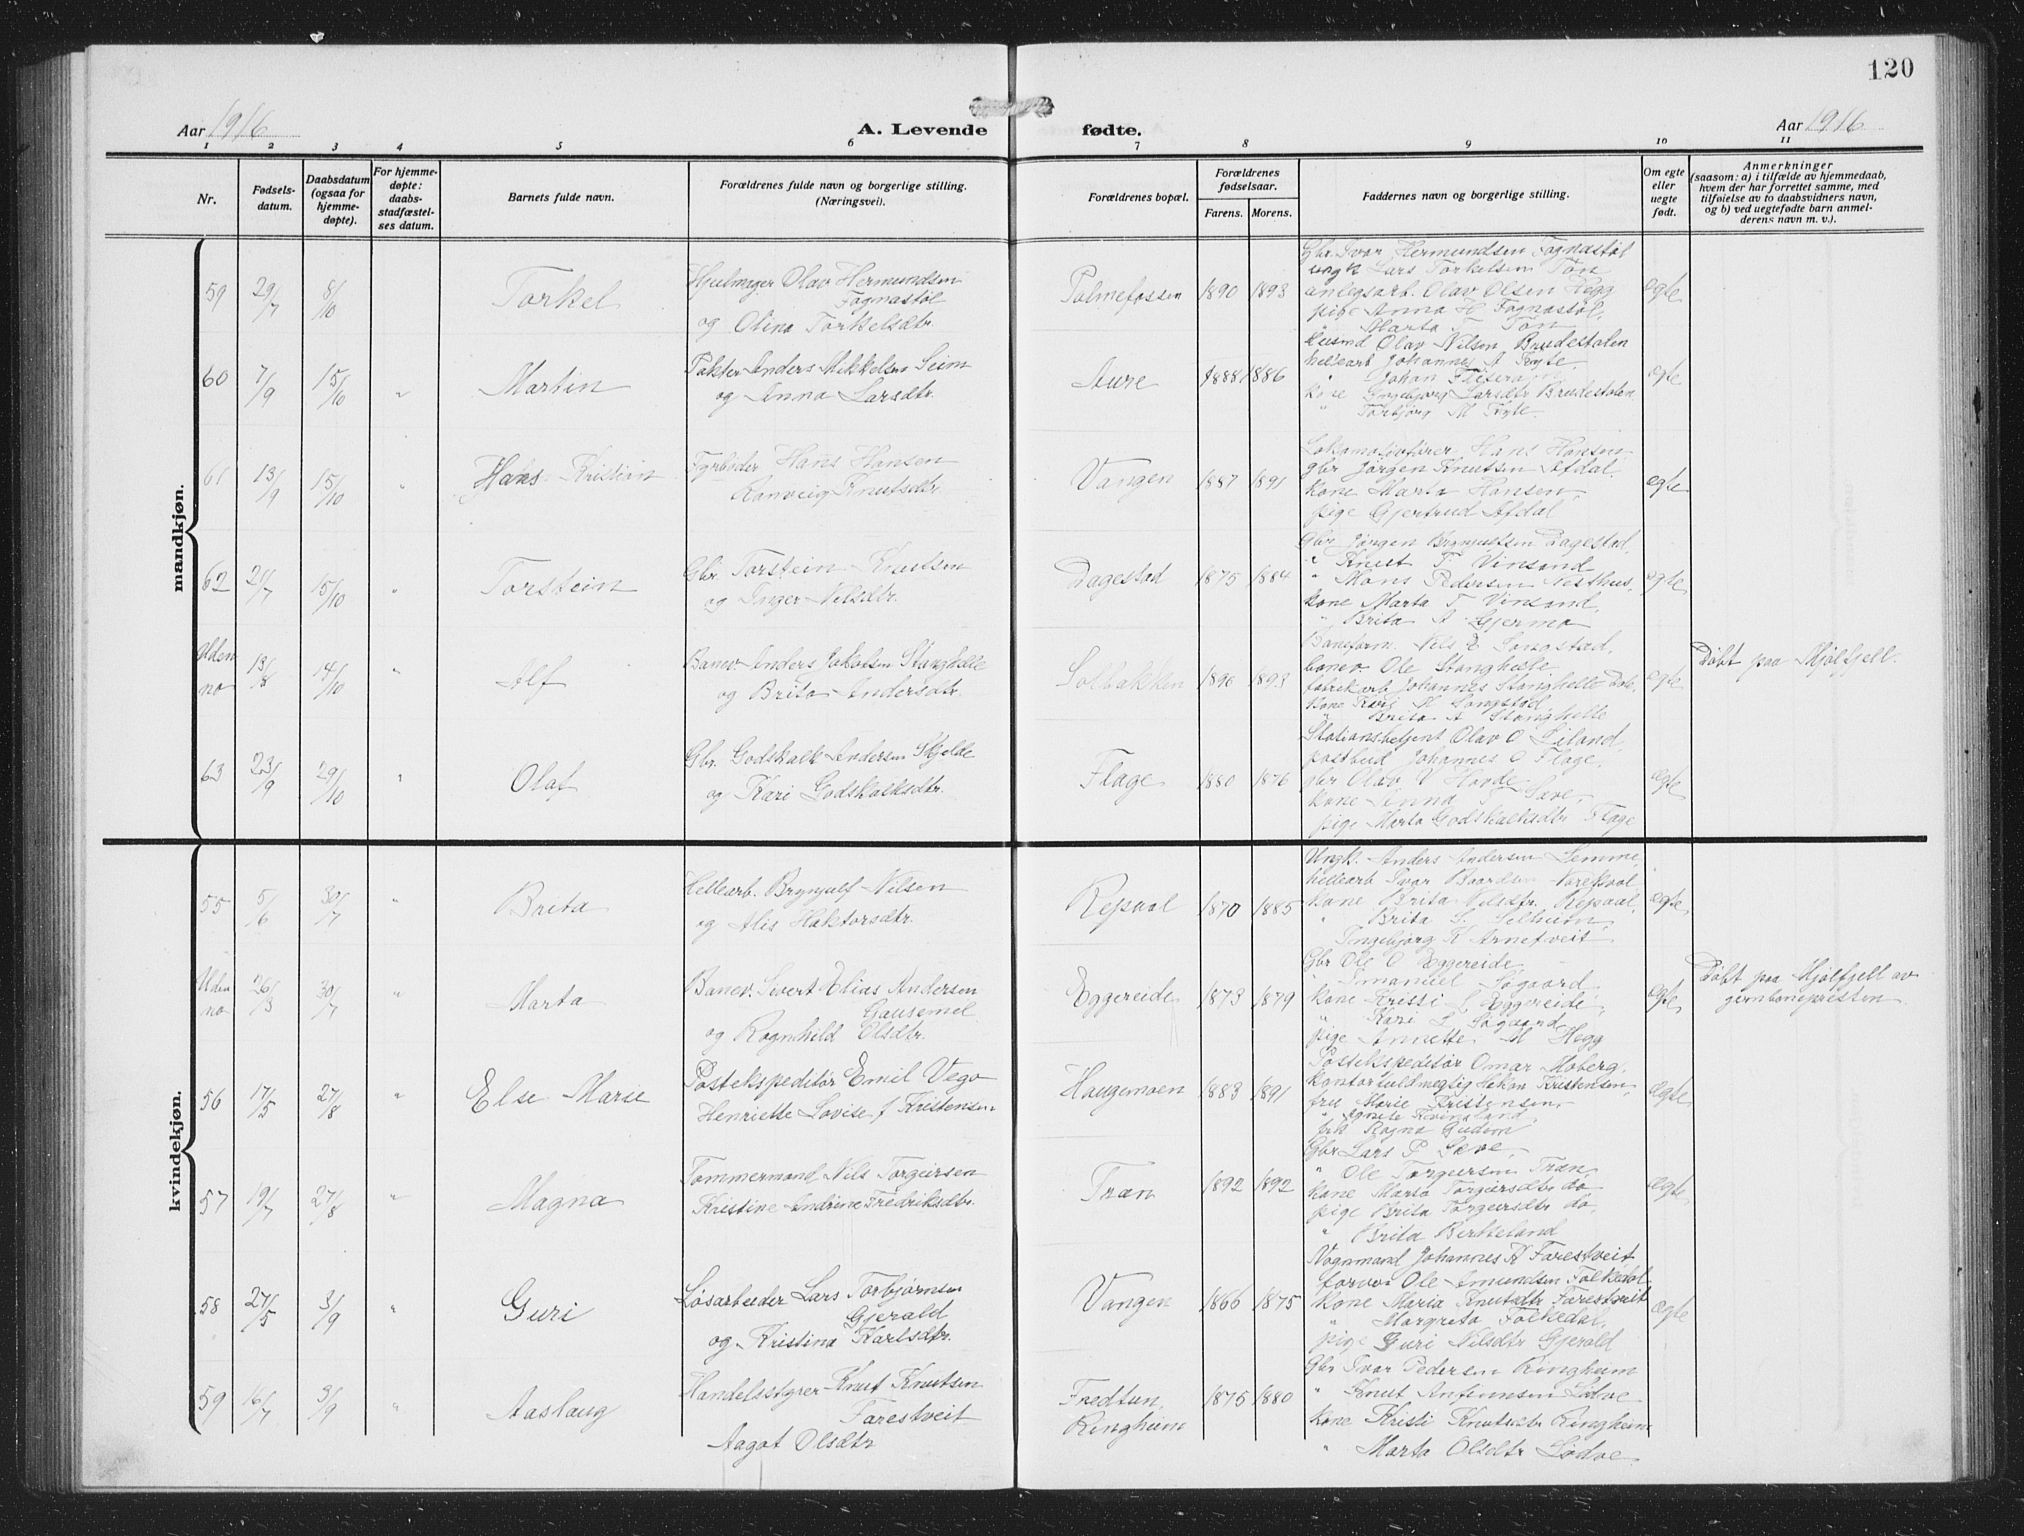 120
Aar 1916
A. Levende fødte.
Aar 1916
1 2 3 4 5 6 7 8 9 10 11
Nr.
Fødsels-
datum.
Daabsdatum
(ogsaa for
hjemme-
døpte).
For hjemme-
døpte:
daabs-
stadfæstel-
ses datum.
Barnets fulde navn.
Forældrenes fulde navn og borgerlige stilling.
(Næringsvei).
Forældrenes bopæl.
Forældrenes
fødselsaar.
Farens. Morens.
Faddernes navn og borgerlige stilling.
Om egte
eller
uegte
født.
Anmerkninger
(saasom: a) i tilfælde av hjemmedaab,
hvem der har forrettet samme, med
tilføielse av to daabsvidners navn,
og b) ved uegtefødte barn anmel-
derens navn m. v.).
mandkjøn.
59 29/7 8/10 Torkel
Hjulmager Olav Hermundsen
Fagnastøl
og Olina Torkelsdtr.
Palmefossen 1890 1893
Gbr Ivar Hermundsen Fagnastøl
ungk Lars Torkelsen Tøn
anlegsarb. Olav Olsen Hegg
pige Anna H Fagnastøl,
" Marta T Tøn
egte
60 7/9 15/10 " Martin
Pakter Anders Mikkelsen Seim
og Anna Larsdtr.
Aure 1888 1886
Husmd Olav Nilsen Brudestolen
hellearb Johannes A Tryte.
" Johan Flisera
kone Ingebjørg Larsdtr Brudestolen
" Torbjørg M Tryte.
egte
61 13/9 15/10 " Hans Kristian
Fyrbøder Hans Hansen
Ranveig Knutsdtr.
Vangen 1887 1891
Lokomotivfører Hans Hansen
gbr Jørgen Knutsen Afdal
kone Marta Hansen,
pige Gjertrud Afdal
egte
62 21/7 15/10 " Torstein
Gbr. Torstein Knutsen
og Inger Nilsdtr.
Dagestad 1875 1884
Gbr Jørgen Brynjulfsen Dagestad,
" Knut T Vinsand
" Mons Pedersen Nesthus,
kone Marta T Vinsand,
" Brita A Gjerme
egte
Uden no 13/8 14/10 " Alf
Banev Anders Jakobsen Stanghelle
og Brita Andersdtr.
Solbakken 1890 1893
Baneform. Nils E Songstad,
banev Ole Stanghelle
fabrikarb Johannes Stanghelle Dale,
kone Kari K Songstad
" Brita A Stanghelle
egte
Døbt paa Mjølfjell.
63 23/9 29/10 " Olaf
Gbr. Godskalk Andersen Skjelde
og Kari Godskalksdtr.
Flage 1880 1876
Stationsbetjent Olav O Eiland,
postbud Johannes O Flage,
gbr Olav V Hovde
kone Anna T Sæve,
pige Marta Godskalksdtr Flage
egte
kvindekjøn.
55 5/6 30/7 " Brita
Hellearb. Brynjulf Nilsen
og Alis Haktorsdtr.
Repvål 1870 1885
Ungk. Anders Andersen Lemme,
hellearb Ivar Baardsen
kone Brita Nilsdtr. Repaal,
" Brita S. Selheim,
Ingebjørg K Arnetveit
egte
Uden no 26/3 30/7 " Marta
Banev. Sivert Elias Andersen
Gausemel
og Ragnhild Olsdtr.
Eggereide 1873 1879
Gbr Ole O Eggereide
" Imanuel Søgaard
kone Kristi L Eggereide,
" Kari L Søgaard
pige Annette M Hegg
egte
Døbt paa Mjølfjell av
jernbanepresten
56 17/5 27/8 " Else Marie
Postekspeditør Emil Vego
Henriette Lovise f Kristensen
Haugamoen 1883 1891
Postekspeditør Omar Moberg,
kontorfuldmegtig Håkon Kristensen,
fru Marie Kristensen,
" Agnete Kvingland
frk Ragna Gudem
egte
57 19/7 27/8 " Magna
Tømmermand Nils Torgeirsen
Kristine Andrine Fredriksdtr.
Træn 1892 1892
Gbr Lars P Sæve,
" Ole Torgeirsen Træn,
kone Marta Torgeirsdtr do
pige Brita Torgeirsdtr do,
" Brita Birkeland
egte
58 27/5 3/9 " Guri
Løsarbeider Lars Torbjørnsen
Gjerald
og Kristina Karlsdtr.
Vangen 1866 1875
Vognmand Johannes K Farestveit
forva Ole Amundsen Folkedal,
kone Maria Knutsdtr Farestveit
" Margreta Folkedal,
pige Guri Nilsdtr Gjerald
egte
59 16/7 3/9 " Aaslaug
Handelsstyrer Knut Knutsen
Farestveit
Aagot Olsdtr
Fredtun,
Ringheim
1875 1880
Gbr Ivar Pedersen Ringheim
" Knut Anfinnsen Lødve
kone Kristi Knutsdtr Ringheim
" Marta Olsdtr Lødve